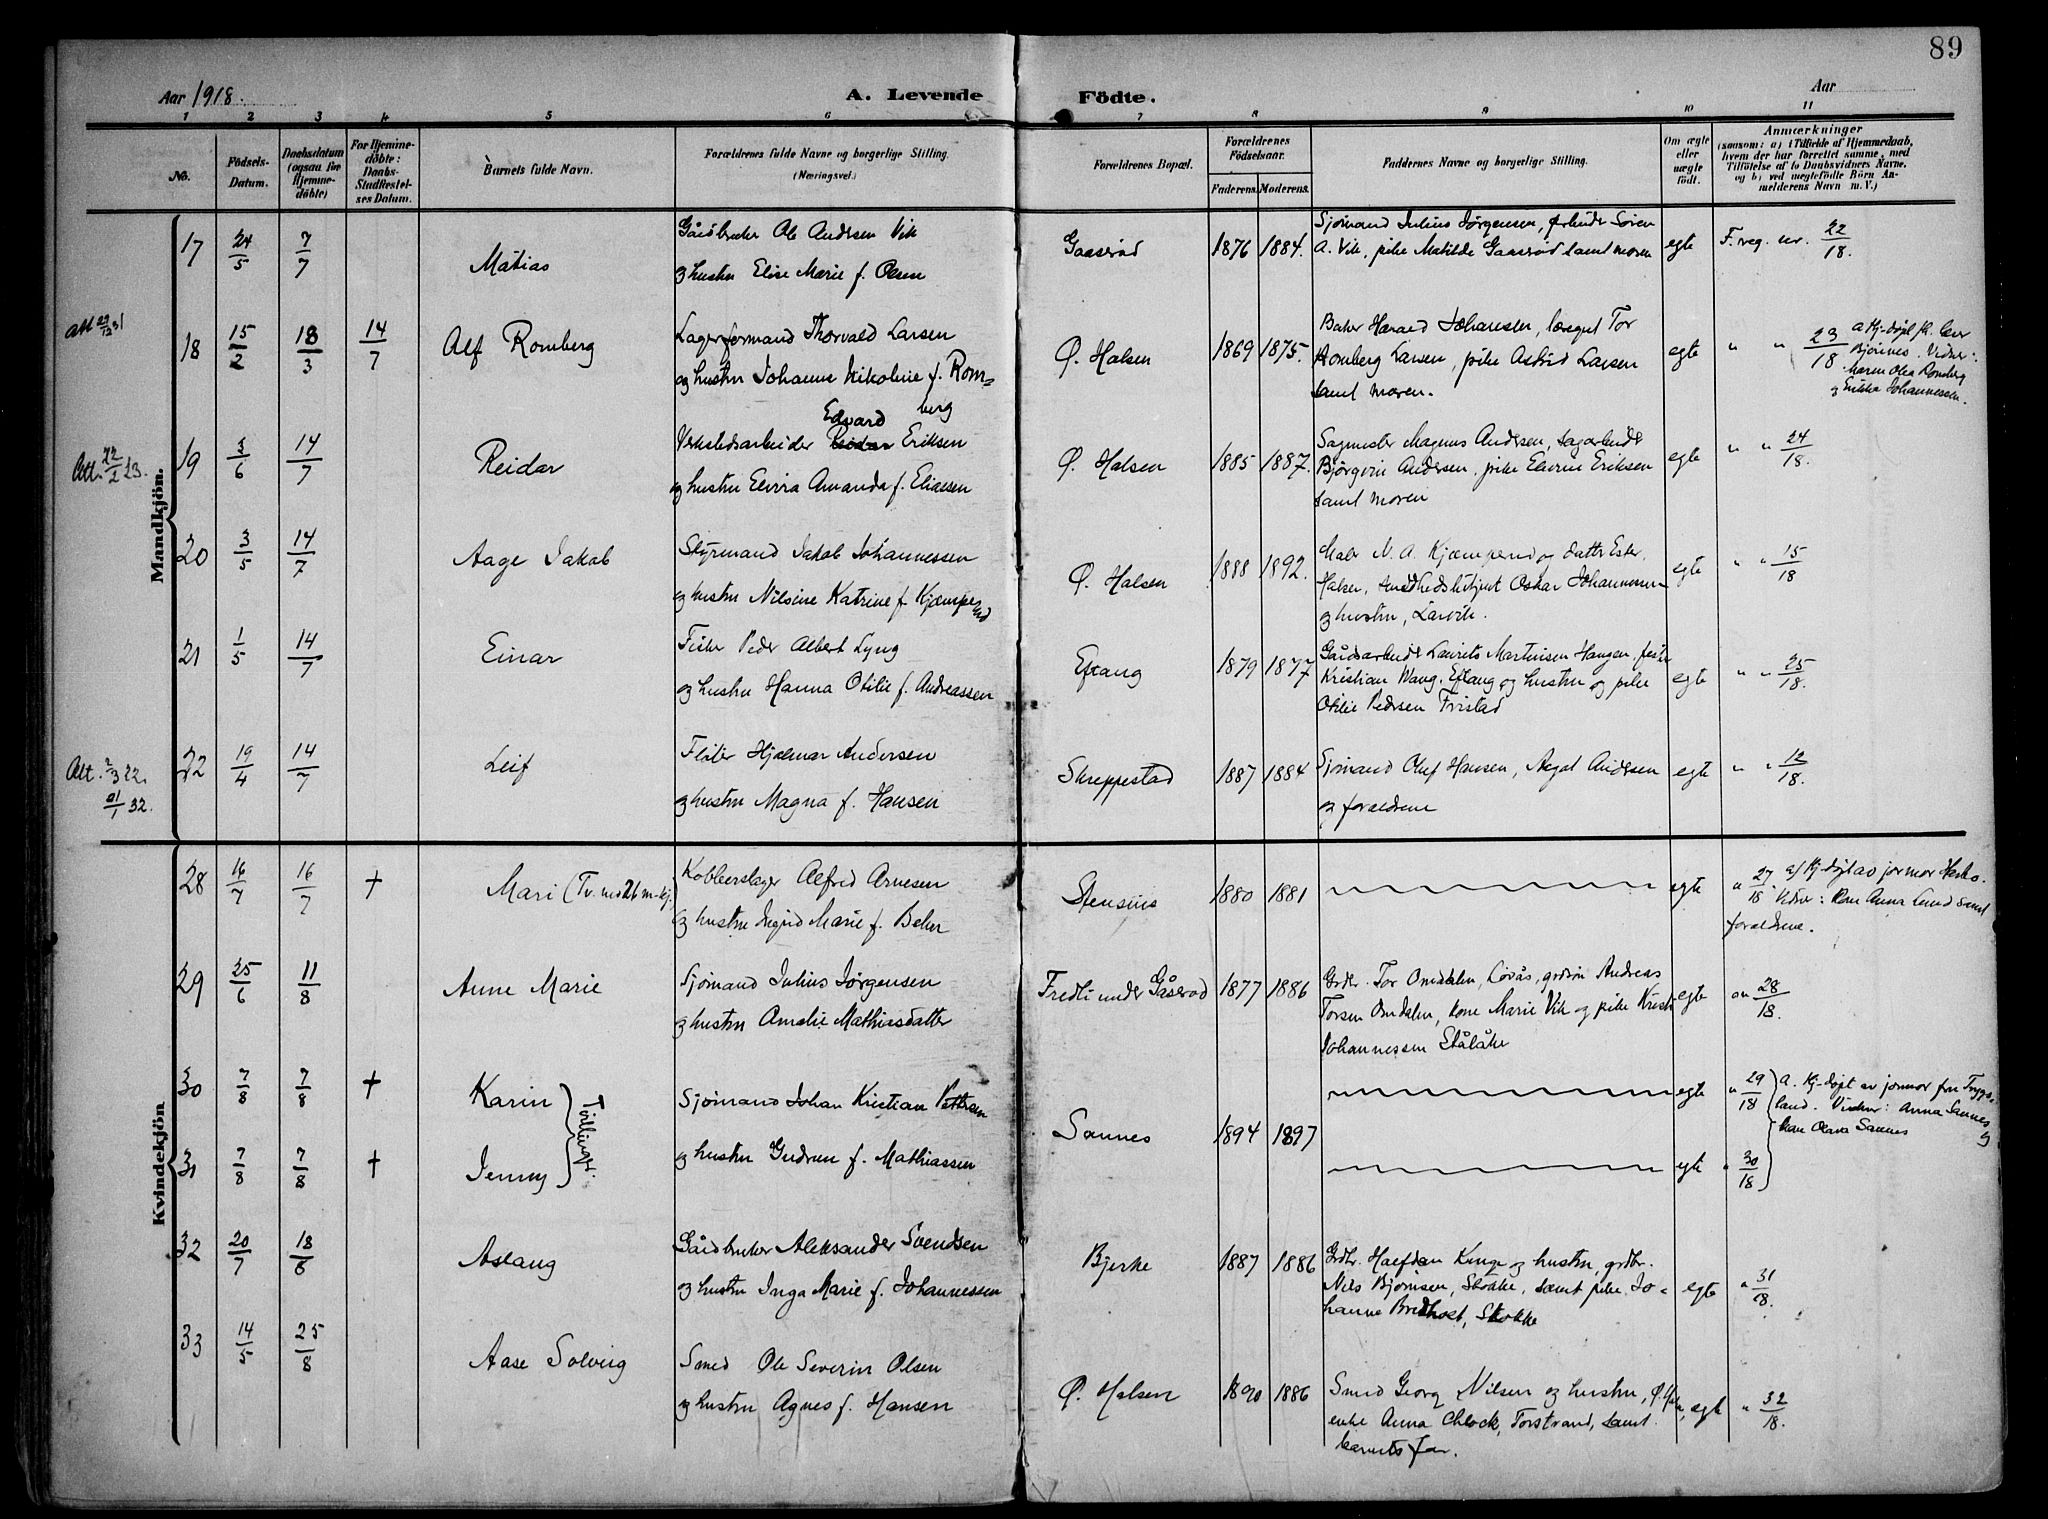 89
Aar 1918.
A. Levende Födte.
Aar
1 2 3 4 5 6 7 8 9 10 11
No.
Födsels-Datum.
Daabsdatum (ogsaa for Hjemmedöbte)
For Hjemmedöbte: Daabs-Stadfæstelses Datum.
Barnets fulde Navn.
Forældrenes fulde Navne og borgerlige Stilling. (Næringsvei.)
Forældrenes Bopæl.
Forældrenes Födselsaar.
Faderens. Moderens.
Faddernes Navne og borgerlige Stilling.
Om ægte eller uægte födt.
Anmærkninger
(saasom: a) i Tilfælde af Hjemmedaab, hvem der har forrettet samme, med Tilföielse af to Daabsvidners Navne, og b) ved uægtefödte Börn Anmelderens Navn m. V.)
Mandkjön.
17 24/5 7/7 Mátias
Gårdbruker Ole Andersen Vik
og hustru Elise Marie f. Olsen
Gaaserød 1876 1884.
Sjømand Julius Jørgensen, Søren
A. Vik, pike Matilde Gaaserød samt moren
egte F. reg. nr. 22/18.
18 15/2 18/3 14/7 Alf Romberg
Lagerformand Thorvald Larsen
og hustru Johanne Nikoline f. Rom=
berg
Ø. Halsen 1869 1875.
Baker Harald Johansen, Tor
Romberg Larsen, pike Astrid Larsen
samt moren.
egte " " 23/18
Vidner:
Maren Olea Romberg
og Johannessen.
Att. 22/2 23.
19 3/6 14/7 Reidar
Edvard
Verkstedsarbeider Reidar Eriksen
og hustru Elvira Amanda f. Eliassen
Ø. Halsen 1885 1887.
Sagmester Magnus Andersen, sagarbeider
Bjørgvin Andersen, pike Elvine Eriksen
samt moren
egte " " 24/18.
20 3/5 14/7 Aage Jakob
Styrmand Jakob Johannessen
og hustru Nilsine Katrine f. Kjæmperud
Ø. Halsen 1888 1892.
Maler N. A. Kjæmperud og datter Ester,
Halsen, Oskar Johannessen
og hustru, Larvik.
egte " " 15/18
21 1/5 14/7 Einar
Fisker Peder Albert Lyng
og hustru Hanna Otilie f. Andreassen
Eftang 1879 1877
Gårdsarbeider Laurits Martinsen Haugen, fisker
Kristian Wang, Eftang og hustru og pike
Otilie Pedersen Fristad
egte " " 25/18.
22 19/4 14/7 Leif
Fløter Hjalmar Andersen
og hustru Magna f. Hansen
Skreppestad 1887 1884
Sjømand Oluf Hansen, Andersen
og forældrene
egte " " 12/18.
Kvindekjön
28 16/7 16/7 + Mari (Tv. med 26 m-kj.)
Kobberslager Alfred Arnesen
og hustru Ingrid Marie f. Beker
Stensnes 1880 1881
egte " 27/18. a/ Hj-døpt av jormor
Vidner: Anna Lund samt
forældrene.
29 25/6 11/8 Anne Marie
Sjømand Julius Jørgensen
og hustru Amalie Mathiasdatter
Fredli under Gåserød 1877 1886
Grdbr. Tor Omdalen, Løvås, grdsøn Andreas
Torsen Omdalen, kone Marie Vik og pike
Johannessen Stålåker
egte 28/18.
30 7/8 7/8 + Karin
31 7/8 7/8 + Jenny
Tvillinger.
Sjømand Johan Kristian Pettersen
og hustru Gudrun f. Mathiassen
Sannes 1894 1897
egte " 29/18
a. Hj-døpt av jormor fru Trygs-
land. Vidner: Anna Sannes og
Olava Sannes
egte " 30/18
32 20/7 18/8 Aslaug
Gårdbruker Aleksander Svendsen
og hustru Inga Marie f. Johannessen
Bjerke 1887 1886
Grdbr. Halfdan Kinge og hustru, grdbr.
Nils Bjørnsen, Stokke, samt pike Jo-
hanne Bredholt, Stokke
egte " 31/18.
33 14/5 25/8 Aase Solveig
Smed Ole Severin Olsen
og hustru Agnes f. Hansen
Ø. Halsen 1890 1886
Smed Georg Nilsen og hustru, Ø. Halsen,
enke Anna Chlock, Torstrand, samt
barnets far.
egte " 32/18.